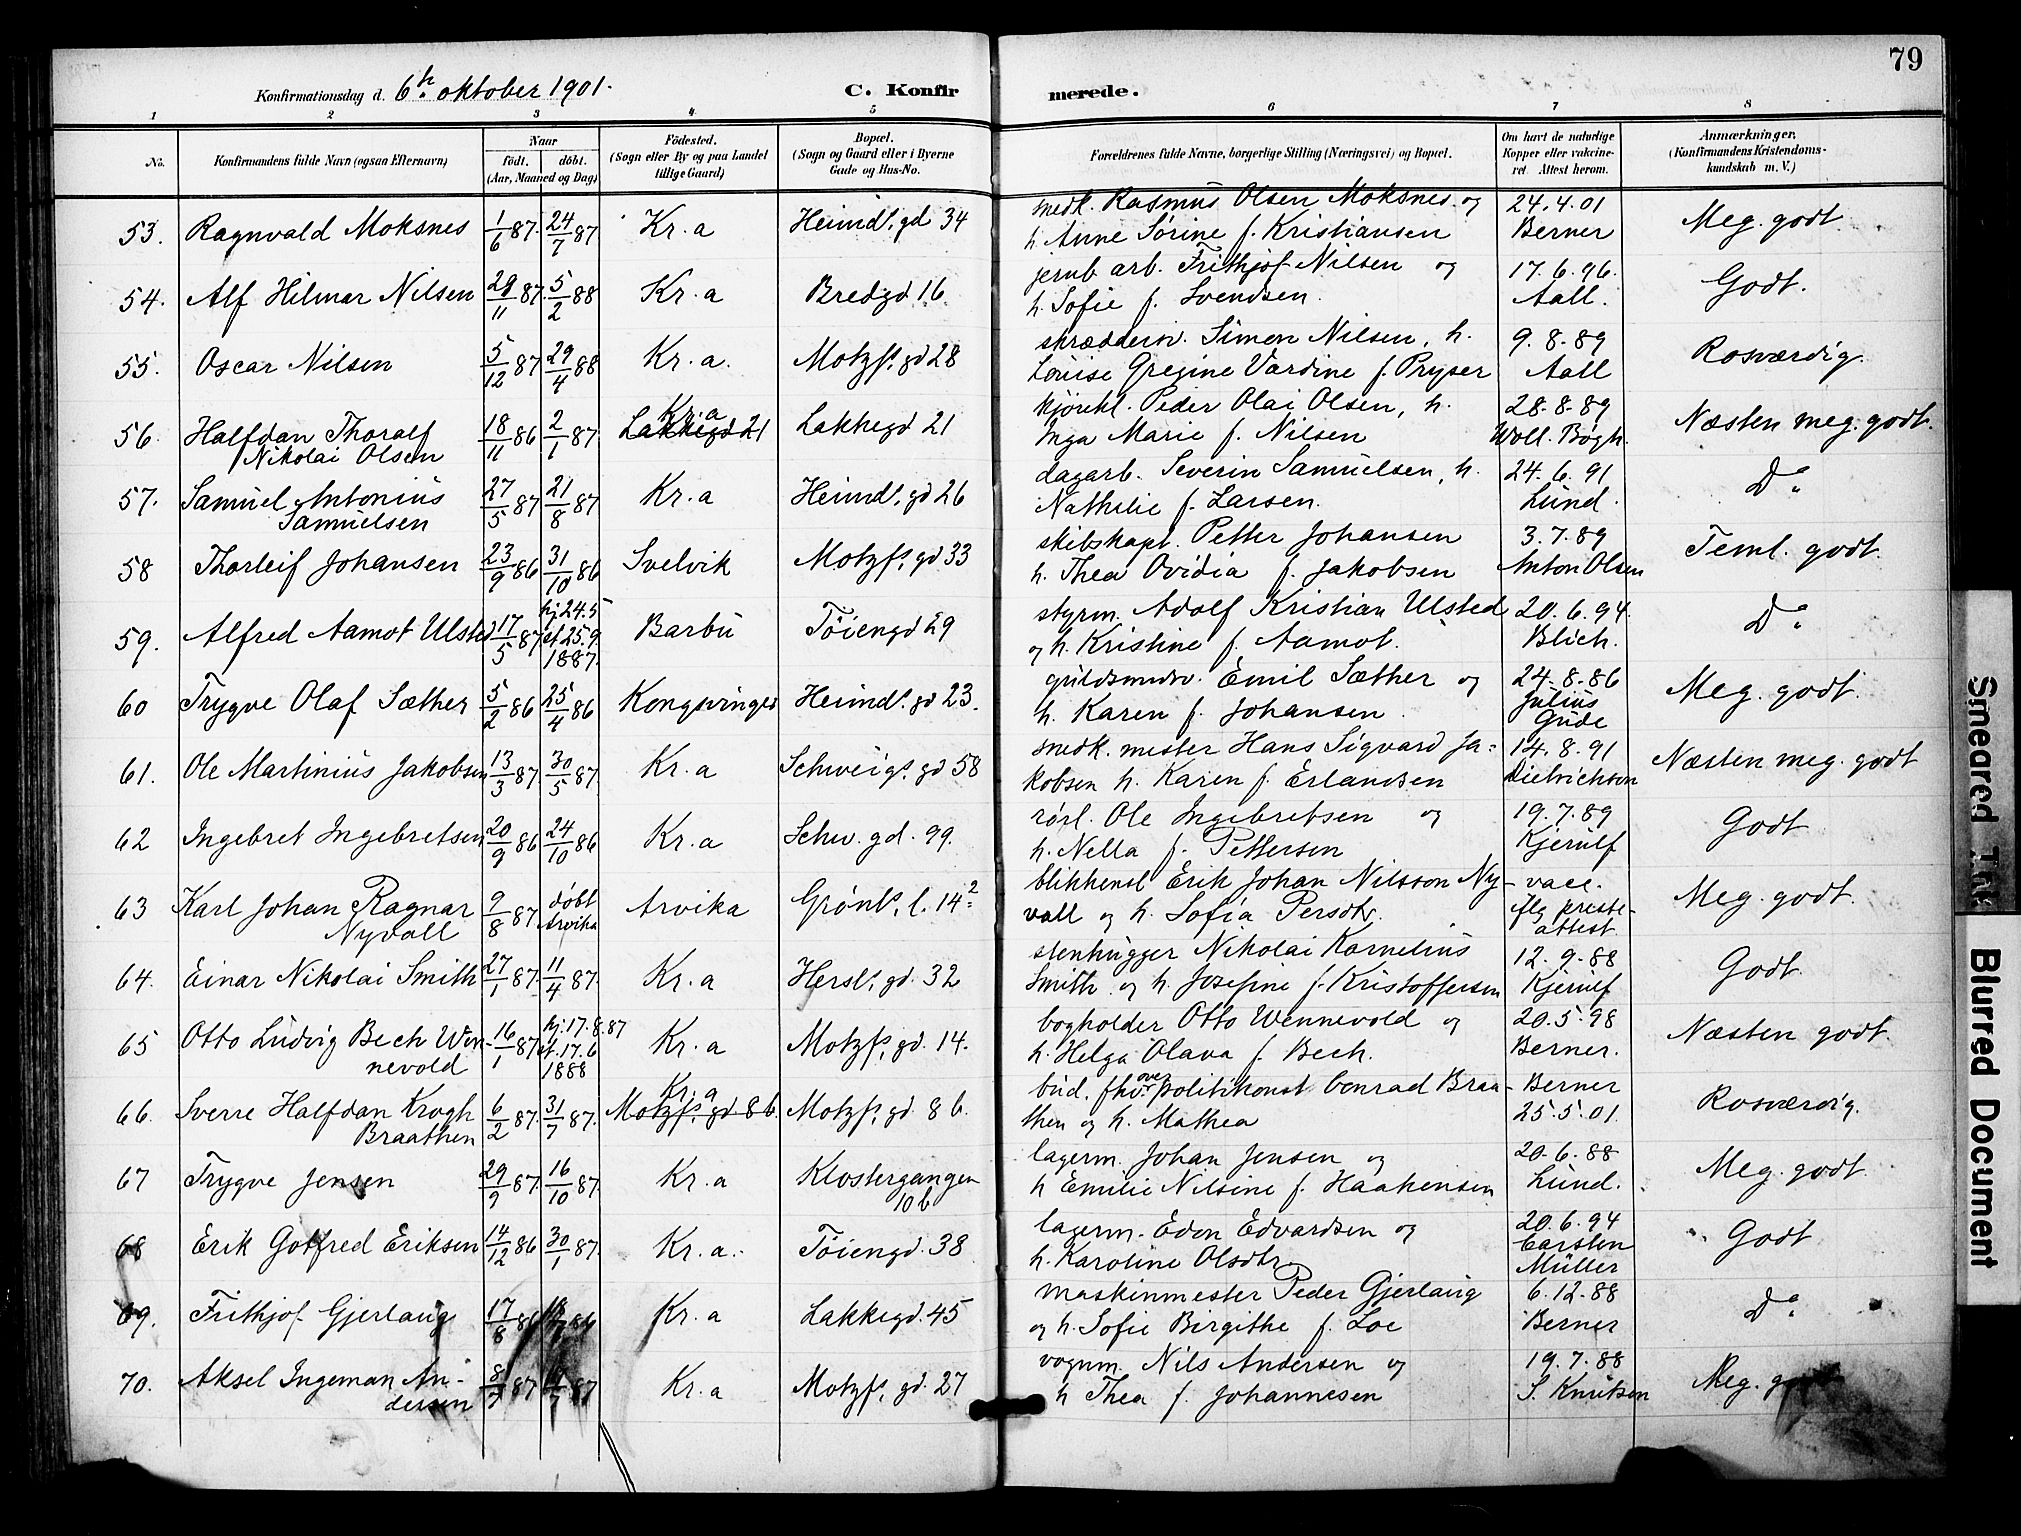 79
Konfirmationsdag d. 6h. oktober 1901.
C. Konfirmerede.
1 2 3 4 5 6 7 8
No.
Konfirmandens fulde Navn (ogsaa Efternavn)
Naar
födt. döbt.
(Aar, Maaned og Dag)
Födested.
(Sogn eller By og paa Landet
tillige Gaard)
Bopæl.
(Sogn og Gaard eller i Byerne
Gade og Hus-No.
Forældrenes fulde Navne, borgerlige Stilling (Næringsvei) og Bopæl.
Om havt de naturlige
Kopper eller vakcine-
ret. Attest herom.
Anmærkninger,
(Konfirmandens Kristendoms-
kundskab m. V.)
53. Ragnvald Moksnes 1/6 87. 24/7 87 Kr.a Heimdls. gd 34 snedk. Rasmus Olsen Moksnes og 24.4.01 Meg. godt.
h. Anne Sörine f. Kristiansen Berner
54. Alf Hilmar Nilsen 29/11 87. 5/2 88 Kr.a Bredgd 16. jernb arb. Frithjof Nilsen og 17.6.96. Godt.
h. Sofie f. Svendsen. Aall.
55. Oscar Nilsen 5/12 87 29/4 88 Kr.a. Motzfs. gd 28 skræddersv. Simon Nilsen, h. 9.8.89 Rosværdig.
Louise Gregine Vardine f. Pryser Aall
56. Halfdan Thoralf 18/11 86 2/1 87. Kr.a Lakkegd 21 Lakkegd 21 kjörekl. Peder Olai Olsen, h. 28.8.89 Næsten meg. godt.
Nikolai Olsen Inga Marie f. Nilsen Woll. Bögh.
57. Samuel Antonius 27/5 87 21/8 87 Kr.a Heimdls. gd 26 dagarb. Severin Samuelsen, h. 24.6.91 Do.
Samuelsen Nathilie f. Larsen. Lund.
58 Thorleif Johansen 23/9 86 31/10 86 Svelvik Motzfs. gd 33 skibskapt. Petter Johansen 3.7.89 Teml. godt.
h. Thea Ovidia f. Jakobsen Anton Olsen
59. Alfred Aamot Ulsted 17/5 87 hj 24.5 st 25.9 1887. Barbu Töiengd 29 styrm. Adolf Kristian Ulsted 20.6.94. Do.
og h. Kristine f. Aamot. Blich.
60 Trygve Olaf Sæther 5/2 86 25/4 86 Kongsvinger Heimdls. gd 23. guldsmedsv. Emil Sæther og 24.8.86 Meg. godt.
h. Karen f. Johansen Julius
Gude
61. Ole Martinius Jakobsen 13/3 87. 30/5 87. Kr.a Schweigs. gd 58 snedk. mester Hans Sigvard Ja= 14.8.91 Næsten meg. godt
kobsen h. Karen f. Erlandsen Dietrichson
62 Ingebret Ingebretsen 20/9 86 24/10 86 Kr.a Schw. gd. 99. rörl. Ole Ingebretsen og 19.7.89 Godt
h. Nella f. Pettersen Kjerulf
63 Karl Johan Ragnar 9/8 87 döbt Arvika Arvika Grönls. l. 14² blikkensl Erik Johan Nilsson Ny- vacc. Meg. godt.
Nyvall vall og h. Sofia Persdtr. iflg preste-
attest
64. Einar Nikolai Smith 27/1 87. 11/4 87. Kr.a Hersls. gd. 32 stenhugger Nikolai Kornelius 12.9.88 Godt.
Smith og h. Josefine f. Kristoffersen Kjerulf
65 Otto Ludvig Bech Wen- 16/1 87 hj. 17.8.87 st. 17.6 1888 Kr.a Motzfs. gd. 14. bogholder Otto Wennevold og 20.5.98 Næsten godt.
nevold h. Helga Olava f. Bech. Berner.
66. Sverre Halfdan Krogh 6/2 87. 31/7 87. Kr.a Motzfs. gd. 8 b. Motzfs. gd 8 b. bud. fhv. over politikonst Conrad Braa- Berner Rosværdig.
Braathen then og h. Mathea 25.5.01.
67 Trygve Jensen 29/9 87. 16/10 87. Kr.a Klostergangen lagerm. Johan Jensen og 20.6.88 Meg. godt
10 b h Emilie Nilsine f. Haakensen Lund.
68 Erik Gotfred Eriksen 14/12 86 30/1 87. Kr.a. Töiengd. 38 lagerm. Eden Edvardsen og 20.6.94 Godt
h. Karoline Olsdtr. Carsten
Müller
69. Frithjof Gjerlaug 17/8 86 Kr.a Lakkegd. 45 maskinmester Peder Gjerlaug 6.12.88 Do.
og h. Sofie Birgithe f. Loe Berner
70. Aksel Ingeman An- 87 87 Kr.a Motzfs. gd. 27 vognm. Nils Andersen og 19.7.88 Meg. godt
dersen h Thea f. Johannesen S. Knutsen
Smeared Ink
Blurred Document